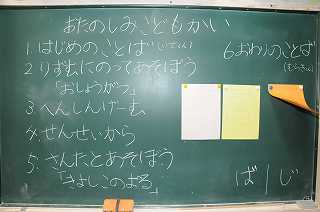 おたのしみこどもかい
1.はじめのことば
2.りずむにのってあそぼう
「おしょうがつ」
3.へんしんげーむ
4.せんせいから
5.さんたとあそぼう
「きよしこのよる」
6.おわりのことば